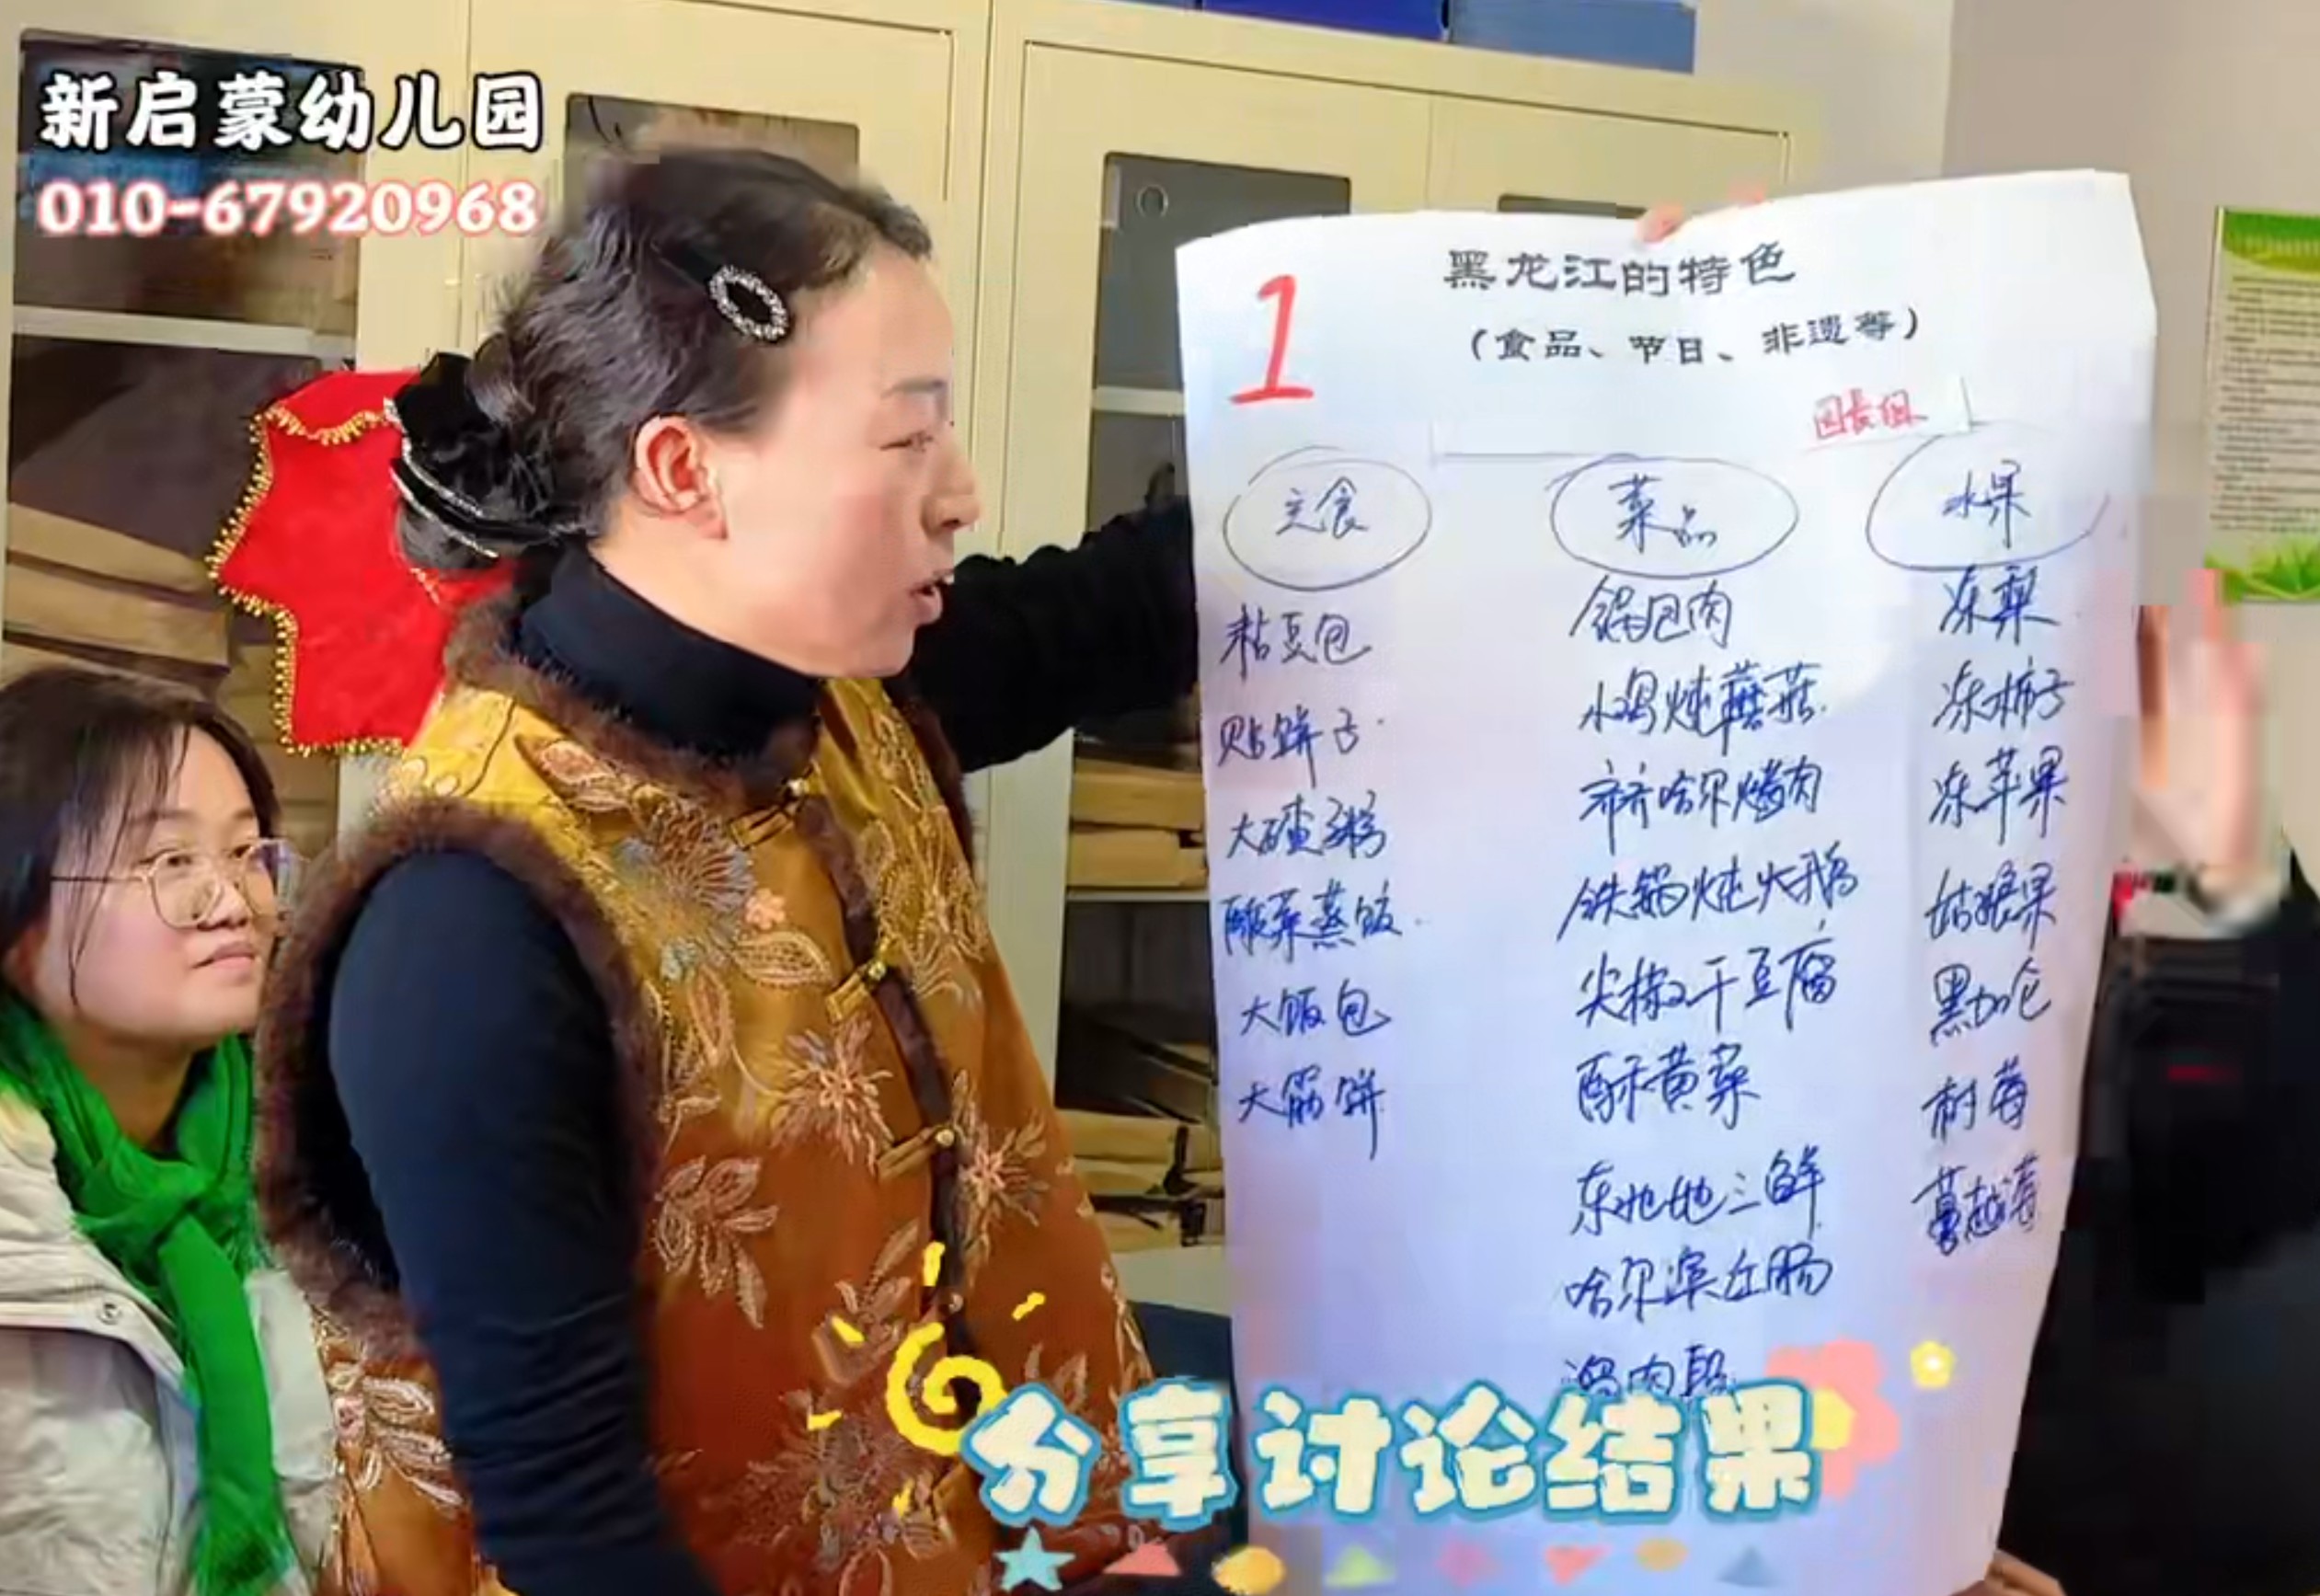 新启蒙幼儿园
010-67920968
1
黑龙江的特色
（食品、节日、非遗等）
园长组
主食
粘豆包
贴饼子
大碴粥
酸菜蒸饭
大饭包
大筋饼
菜品
锅包肉
小鸡炖蘑菇
齐齐哈尔烤肉
铁锅炖大鹅
尖椒干豆腐
酥黄菜
东北地三鲜
哈尔滨红肠
溜肉段
水果
冻梨
冻柿子
冻苹果
姑娘果
黑加仑
树莓
蔓越莓
分享讨论结果